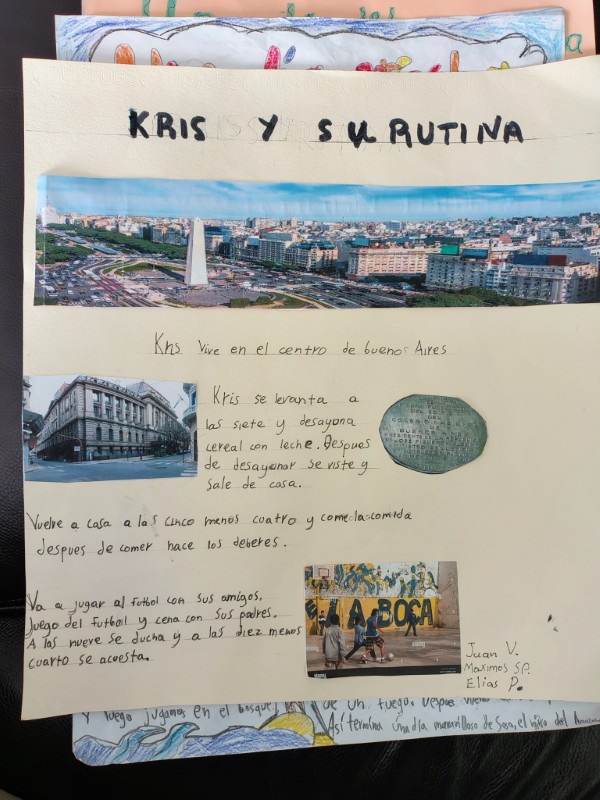 KRIS Y SU RUTINA
Kris vive en el centro de buenos Aires
Kris se levanta a
las siete y desayona
cereal con leche. Despues
de desayonar se viste y
sale de casa.
BUENOS
Vuelve a casa a las cinco menos cuatro y come la comida
despues de comer hace los deberes.
Va a jugar al futbol con sus amigos.
Juego del futboll y cena con sus padres.
A las nueve se ducha y a las diez menos
cuarto se acuesta.
E LA BOCA
alamy
Juan V.
Maximos S.P.
Elias P.
y luego jugamos en el bosque
de un fuego. Despues
Así termina una día maravilloso de Sosa, el niño del